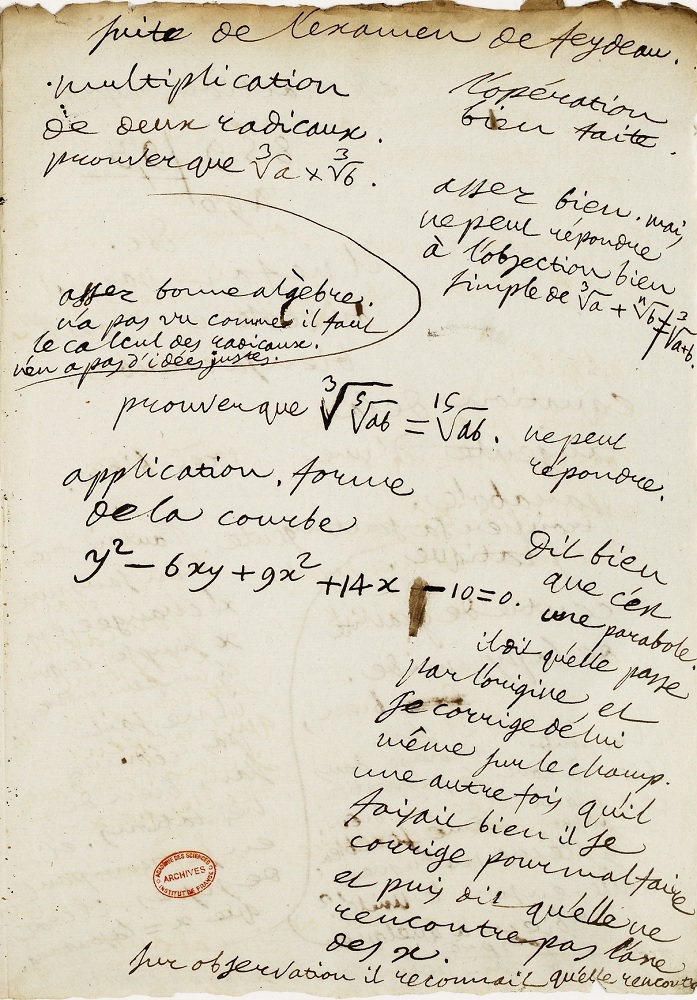 suite de l'examen de feydeau.
multiplication
de deux radicaux.
prouver que ∛a × ∛b.
l'opération
bien faite.
assez bien. mais
ne peut répondre
à l'objection bien
simple de ∛a + ⁿ√b ≠ ∛a+b.
assez bonne algèbre.
n'a pas vu comme il faut
le calcul des radicaux.
n'en a pas d'idées justes.
prouver que ∛⁵√ab = ¹⁵√ab. ne peut
répondre.
application. forme
de la courbe
y² − 6xy + 9x² + 14x − 10 = 0.
Dit bien
que c'est
une parabole.
il dit qu'elle passe
par l'origine et
se corrige de lui
même sur le champ.
une autre fois qu'il
faisait bien il se
corrige pour mal faire
et puis dit qu'elle ne
rencontre pas l'axe
des x.
sur observation il reconnait qu'elle rencontre
ACADÉMIE DES SCIENCES
ARCHIVES
INSTITUT DE FRANCE